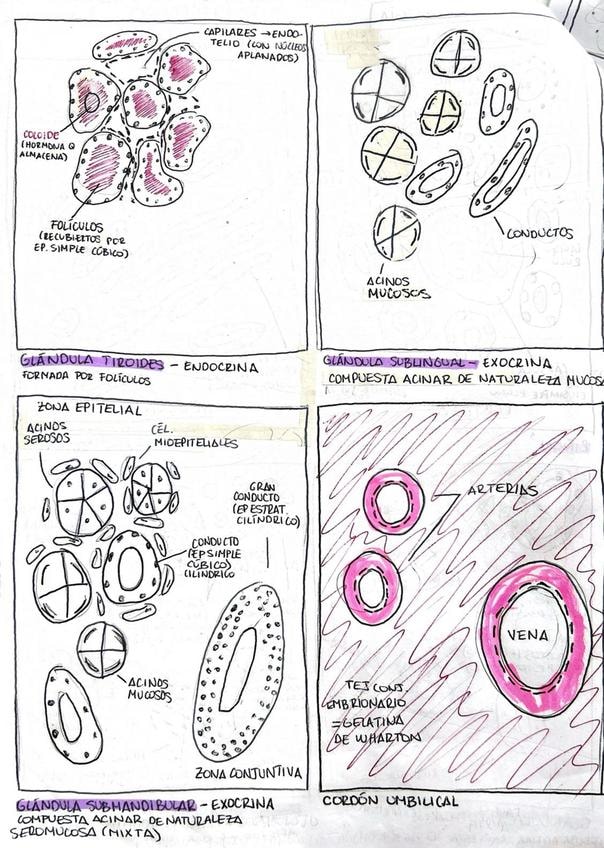 CAPILARES → ENDO-
TELIO (CON NÚCLEOS
APLANADOS)
COLOIDE
(HORMONA Q
ALMACENA)
FOLÍCULOS
(RECUBIERTOS POR
EP. SIMPLE CÚBICO)
GLÁNDULA TIROIDES - ENDOCRINA
FORMADA POR FOLÍCULOS
CONDUCTOS
ACINOS
MUCOSOS
GLÁNDULA SUBLINGUAL - EXOCRINA
COMPUESTA ACINAR DE NATURALEZA MUCOSA
ZONA EPITELIAL
ACINOS
SEROSOS
CÉL.
MIOEPITELIALES
GRAN
CONDUCTO
(EP ESTRAT.
CILÍNDRICO)
CONDUCTO
(EP SIMPLE
CÚBICO)
CILÍNDRICO
ACINOS
MUCOSOS
ZONA CONJUNTIVA
GLÁNDULA SUBMANDIBULAR - EXOCRINA
COMPUESTA ACINAR DE NATURALEZA
SEROMUCOSA (MIXTA)
ARTERIAS
VENA
TEJ CONJ.
EMBRIONARIO
= GELATINA
DE WHARTON
CORDÓN UMBILICAL